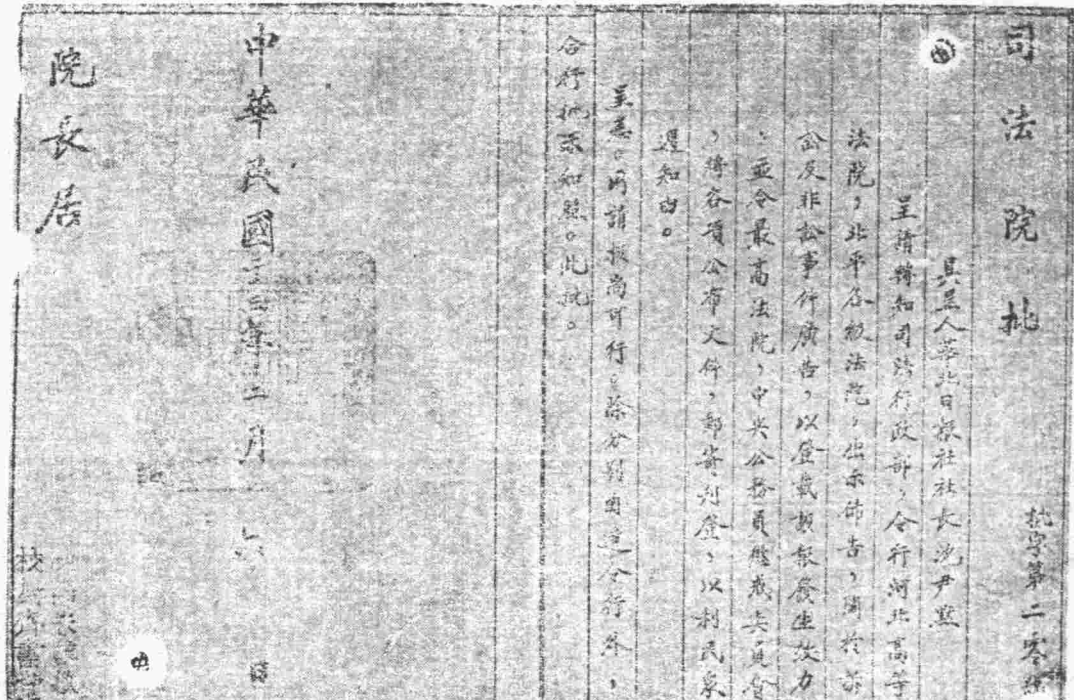 司法院批
批字第二零
具呈人華北日報社社長沈尹默
呈請轉知司法行政部，令行河北高等
法院，北平各級法院，出示佈告，關於訴
訟及非訟事件廣告，以登載該報發生效力
、並令最高法院，中央公務員懲戒委員會
，將各項公布文件，郵寄刊登，以利民眾
週知由。
呈悉。所請核尚可行。除分別函達令行外，
合行批示知照。此批。
中華民國 年十二月 六
院長居
校